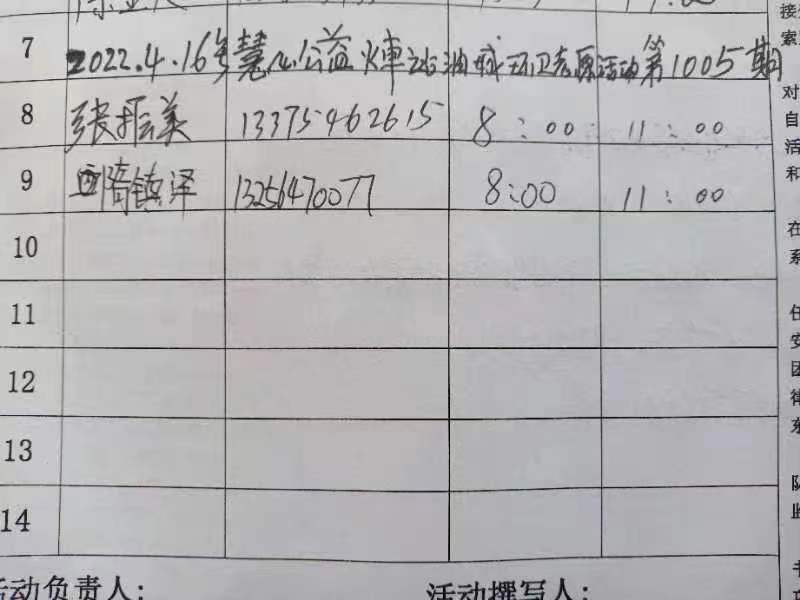 7 2022.4.16年慧心公益火車站油城环卫志愿活动第1005期
8 张振美 13375462615 8:00 11:00
9 镇泽 13256470077 8:00 11:00
10
11
12
13
14
活动负责人: 活动撰写人:
接
索
对
自
活
和
在
系
任
安
团
律
东
队